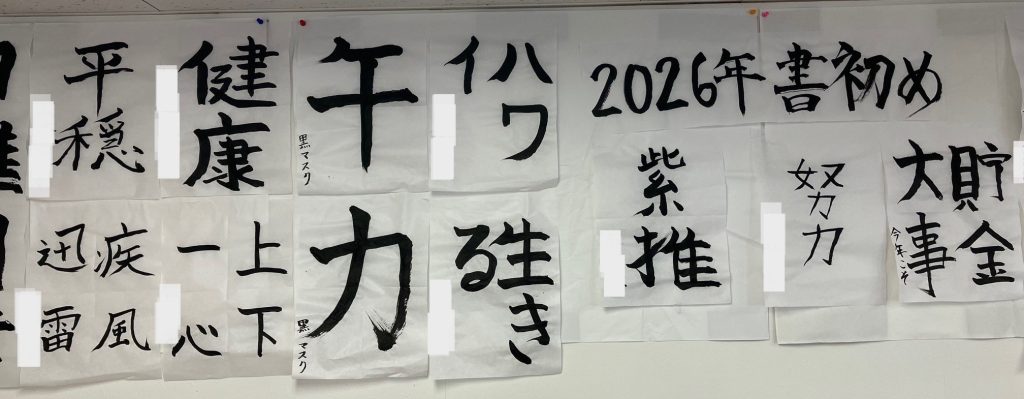 2026年 書初め
貯金
大事
今年こそ
努力
紫推
ハワ
イ
生き
る
午
黒マスク
力
黒マスク
健康
上下
一心
平穏
疾風
迅雷